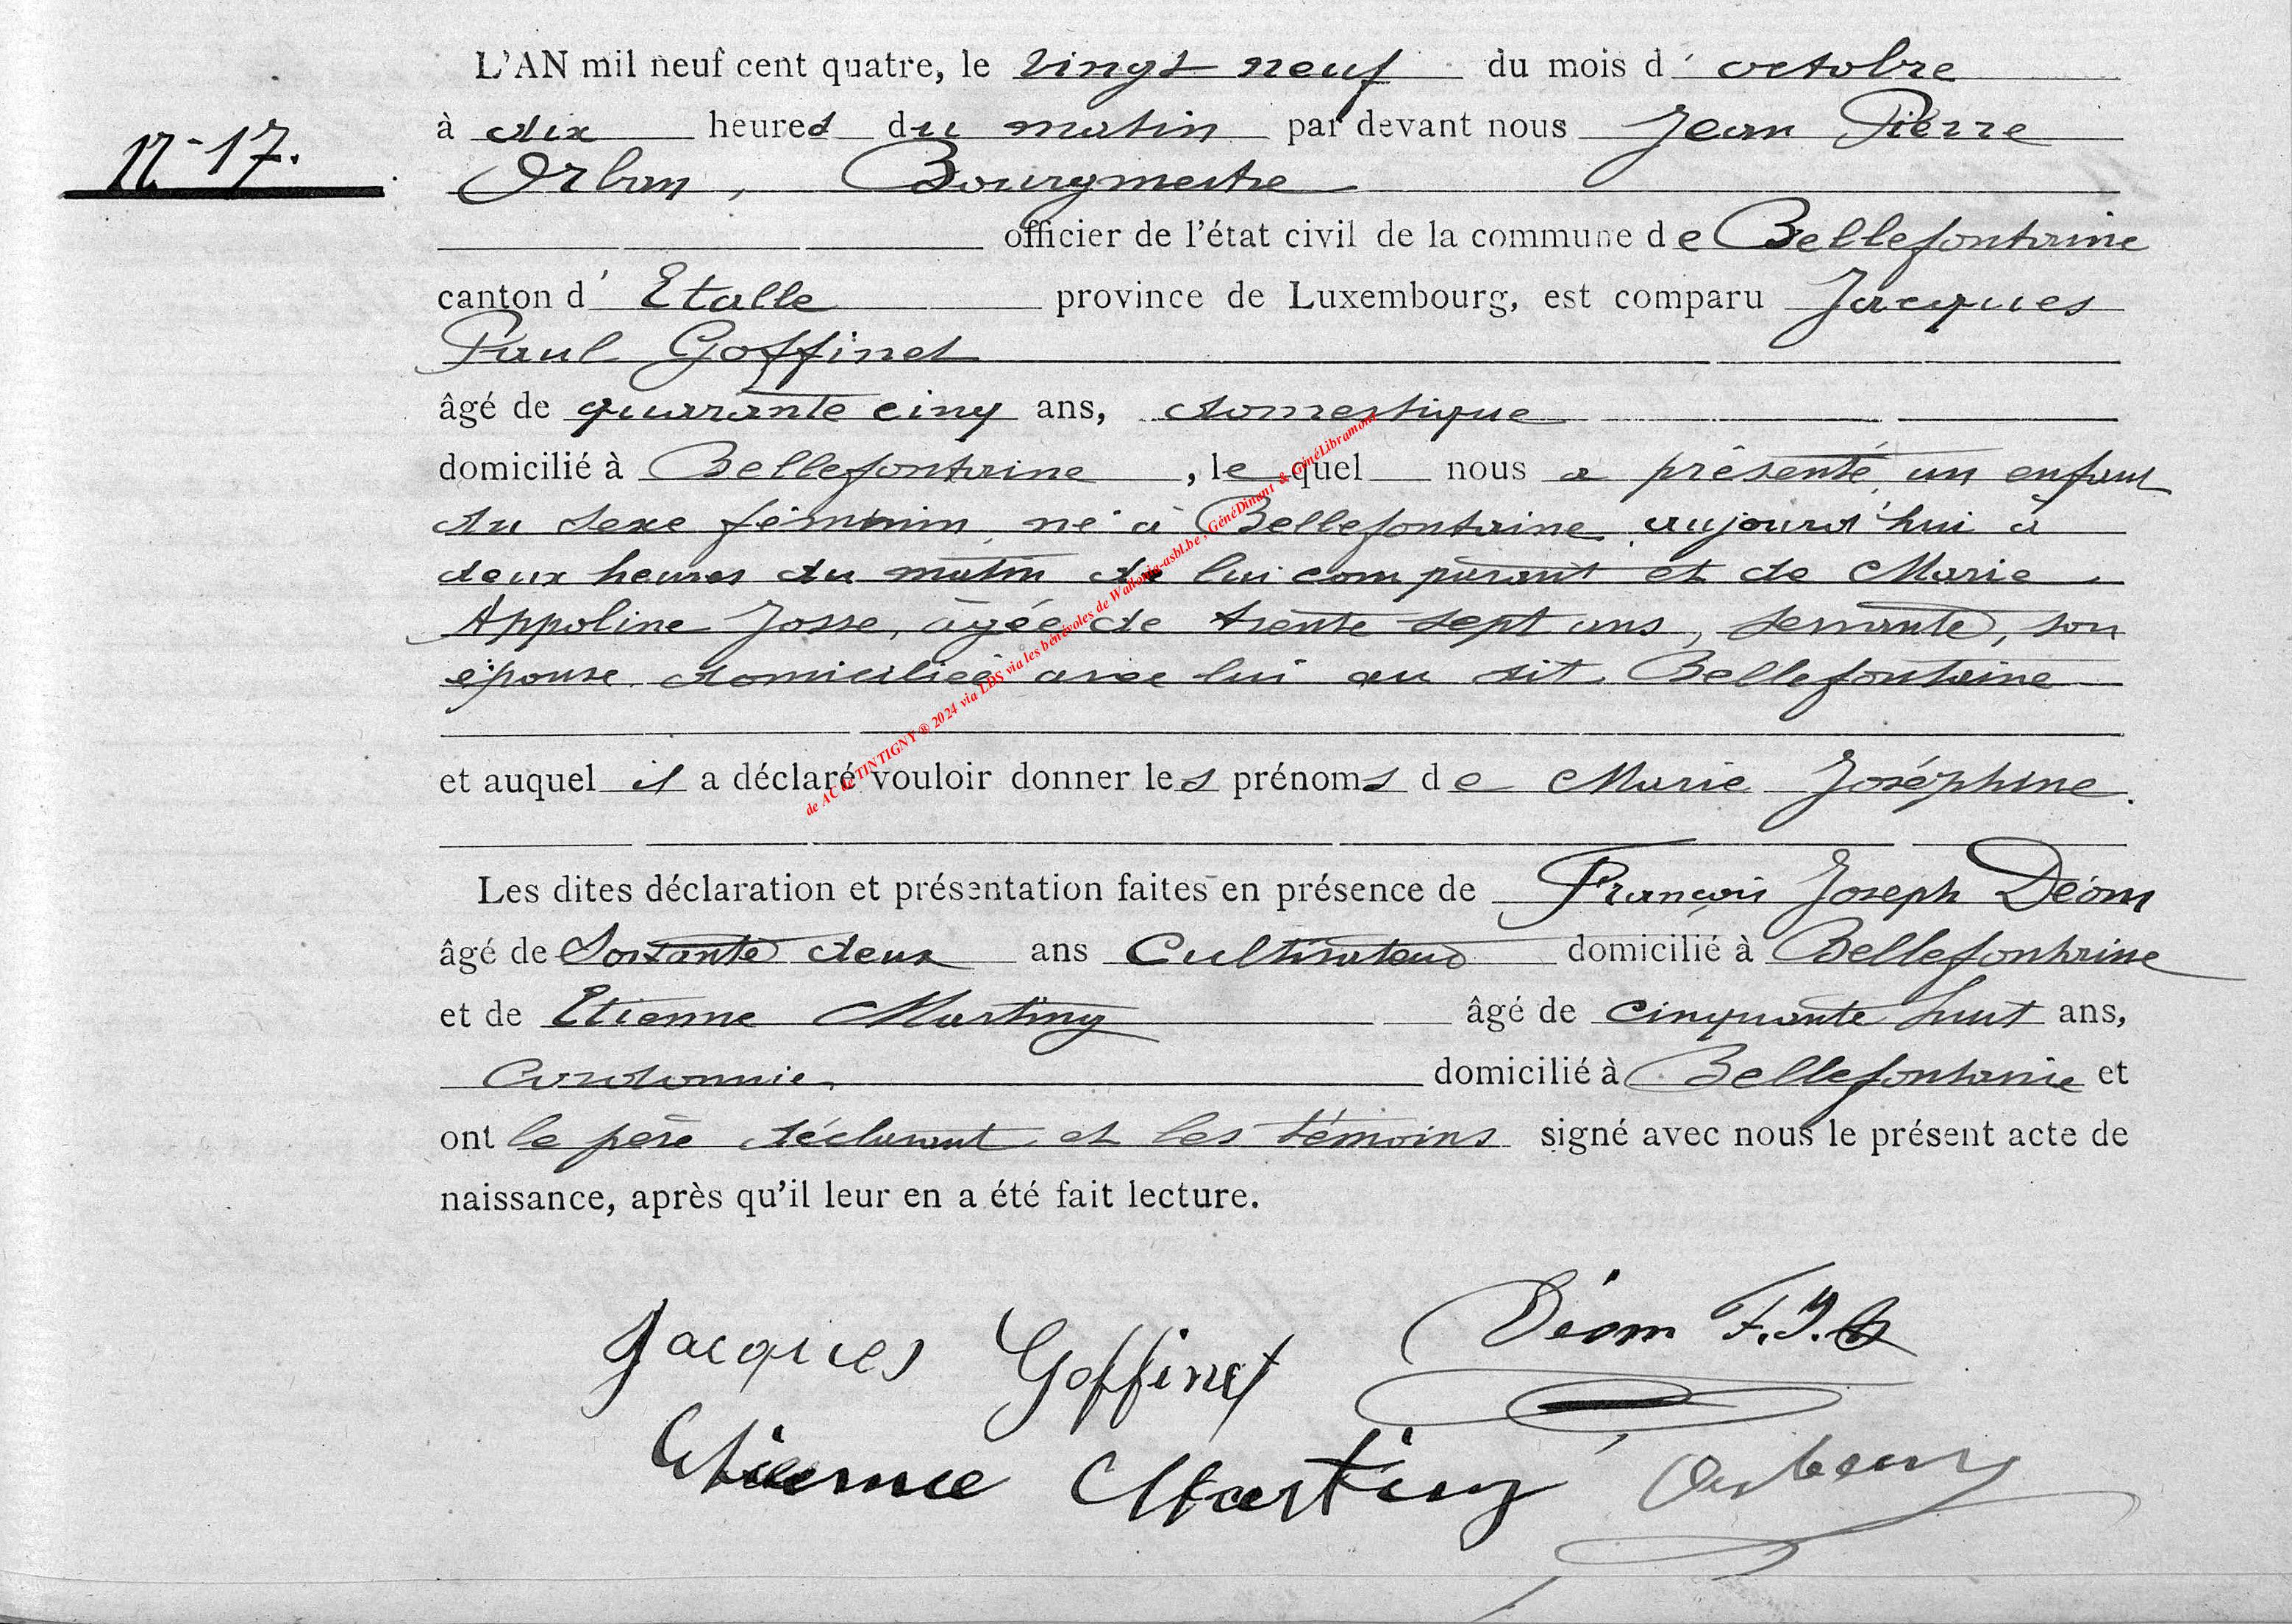 L'AN mil neuf cent quatre, le vingt neuf du mois d' octobre
N° 17.
à dix heures du matin par devant nous Jean Pierre
Orban, Bourgmestre
officier de l'état civil de la commune de Bellefontaine
canton d' Etalle province de Luxembourg, est comparu Jacques
Paul Goffinet
âgé de quarante cinq ans, domestique
domicilié à Bellefontaine, lequel nous a présenté un enfant
du sexe féminin né à Bellefontaine aujourd'hui à
deux heures du matin de lui comparant et de Marie
Appoline Josse, âgée de trente sept ans, servante, son
épouse domiciliée avec lui au dit Bellefontaine
et auquel il a déclaré vouloir donner les prénoms de Marie Joséphine.
de AC de TINTIGNY ® 2024 via LDS via les bénévoles de Wallonia-asbl.be, GénéDinant & GénéLibramont
Les dites déclaration et présentation faites en présence de François Joseph Déom
âgé de Soixante deux ans Cultivateur domicilié à Bellefontaine
et de Etienne Martiny âgé de cinquante huit ans,
Cordonnie domicilié à Bellefontaine et
ont le père déclarant et les témoins signé avec nous le présent acte de
naissance, après qu'il leur en a été fait lecture.
Jacques Goffinet Déom F.J.
Etienne Martiny Orban